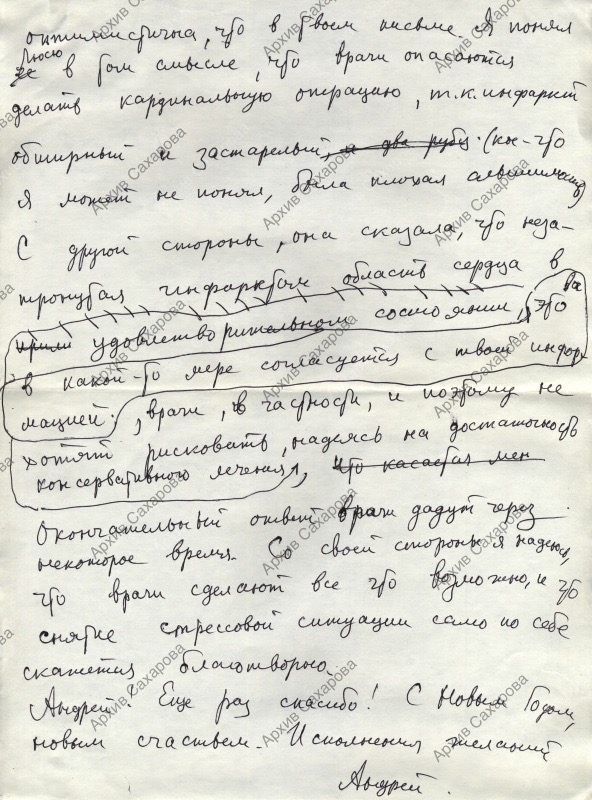 оптимистична, что в твоем письме. Я понял
Люсю
ее в том смысле, что врачи опасаются
делать кардинальную операцию, т.к. инфаркт
обширный и застарелый, и два рубц. (кое-что
я может не понял, была плохая слышимость)
С другой стороны, она сказала, что неза-
тронутая инфарктом область сердца в
удовлетворительном состоянии, это
в какой-то мере согласуется с твоей инфор-
мацией; врачи, в частности, и поэтому не
хотят рисковать, надеясь на достаточность
консервативного лечения, что касается мен
Окончательный ответ врачи дадут через
некоторое время. Со своей стороны я надеюсь,
что врачи сделают все что возможно, и что
снятие стрессовой ситуации само по себе
скажется благотворно.
Андрей! Еще раз спасибо! С Новым Годом,
новым счастьем. Исполнения желаний
Андрей.
Архив Сахарова